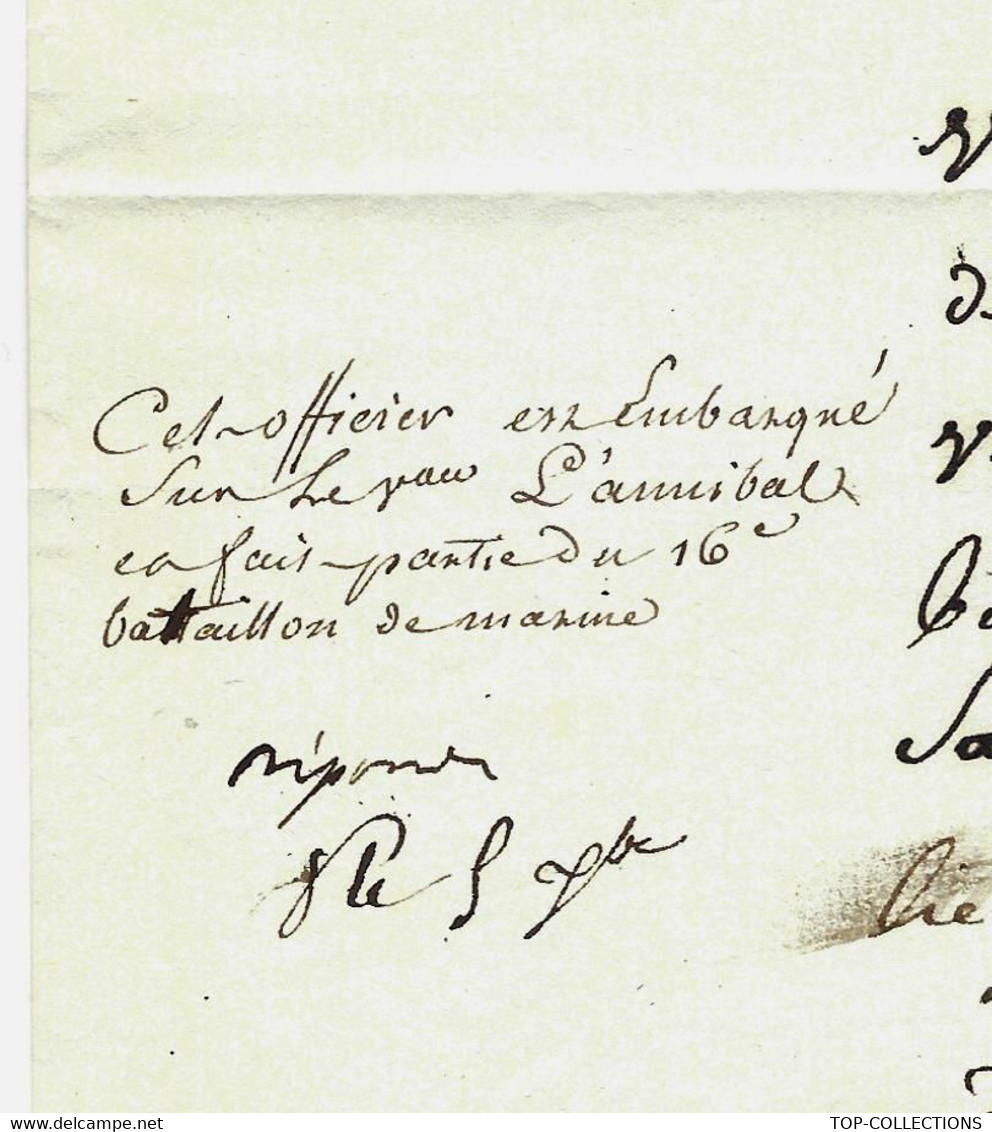 Cet officier est Embarqué
Sur Le vau L'annibal
et fait partie du 16e
bataillon de marine
répondu
Le 5 xbre
TOP-COLLECTIONS